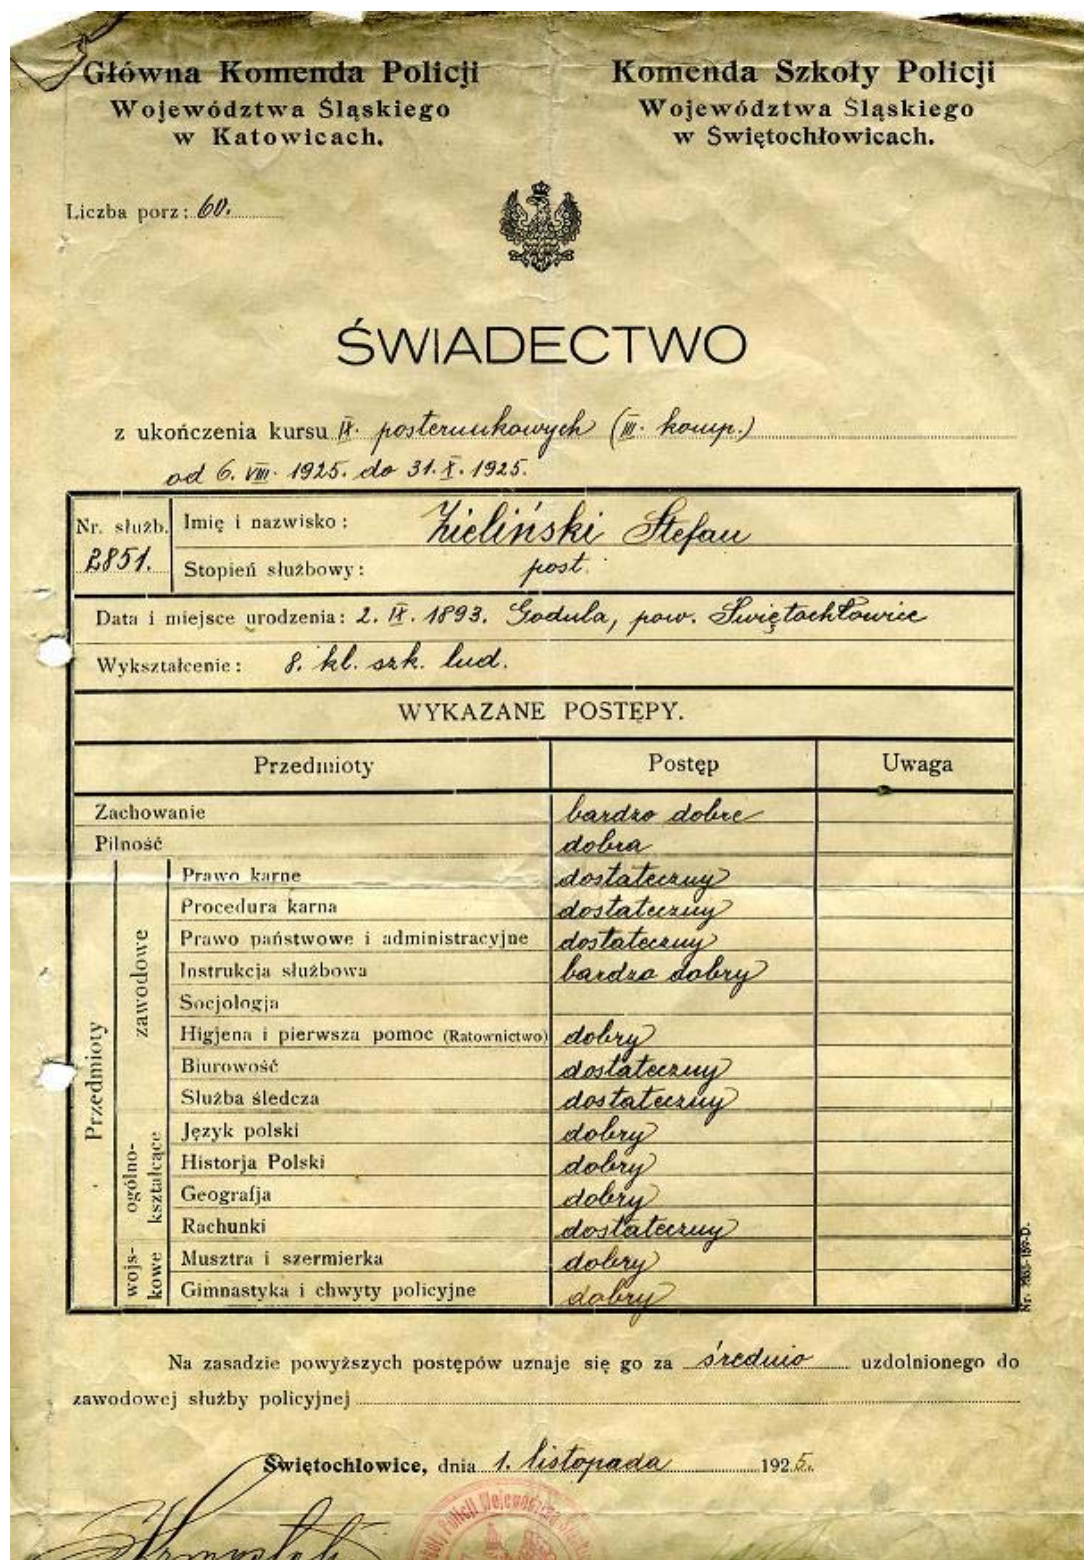 Główna Komenda Policji
Województwa Śląskiego
w Katowicach.
Komenda Szkoły Policji
Województwa Śląskiego
w Świętochłowicach.
Liczba porz: 60.
ŚWIADECTWO
z ukończenia kursu IX. posterunkowych (III. komp.)
od 6. VIII. 1925. do 31. X. 1925.
Nr. służb. 2851.
Imię i nazwisko: Zieliński Stefan
Stopień służbowy: post.
Data i miejsce urodzenia: 2. IX. 1893. Godula, pow. Świętochłowice
Wykształcenie: 8. kl. szk. lud.
WYKAZANE POSTĘPY.
Przedmioty Postęp Uwaga
Zachowanie bardzo dobre
Pilność dobra
Przedmioty
zawodowe
Prawo karne dostateczny
Procedura karna dostateczny
Prawo państwowe i administracyjne dostateczny
Instrukcja służbowa bardzo dobry
Socjologja
Higjena i pierwsza pomoc (Ratownictwo) dobry
Biurowość dostateczny
Służba śledcza dostateczny
ogólno-
kształcące
Język polski dobry
Historja Polski dobry
Geografja dobry
Rachunki dostateczny
wojs-
kowe
Musztra i szermierka dobry
Gimnastyka i chwyty policyjne dobry
Na zasadzie powyższych postępów uznaje się go za średnio uzdolnionego do
zawodowej służby policyjnej
Świętochłowice, dnia 1. listopada 1925.
Policji